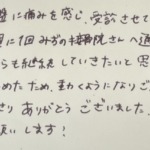 盤に痛みを感じ、受診させて
週に1回 みずの接骨院さんへ通
らも継続していきたいと思
めたため、動くようになりご
さり ありがとう ございました
願いします！